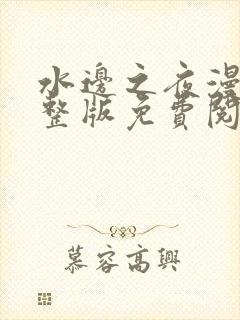 水邊之夜漫
整版免費閱
慕容高興